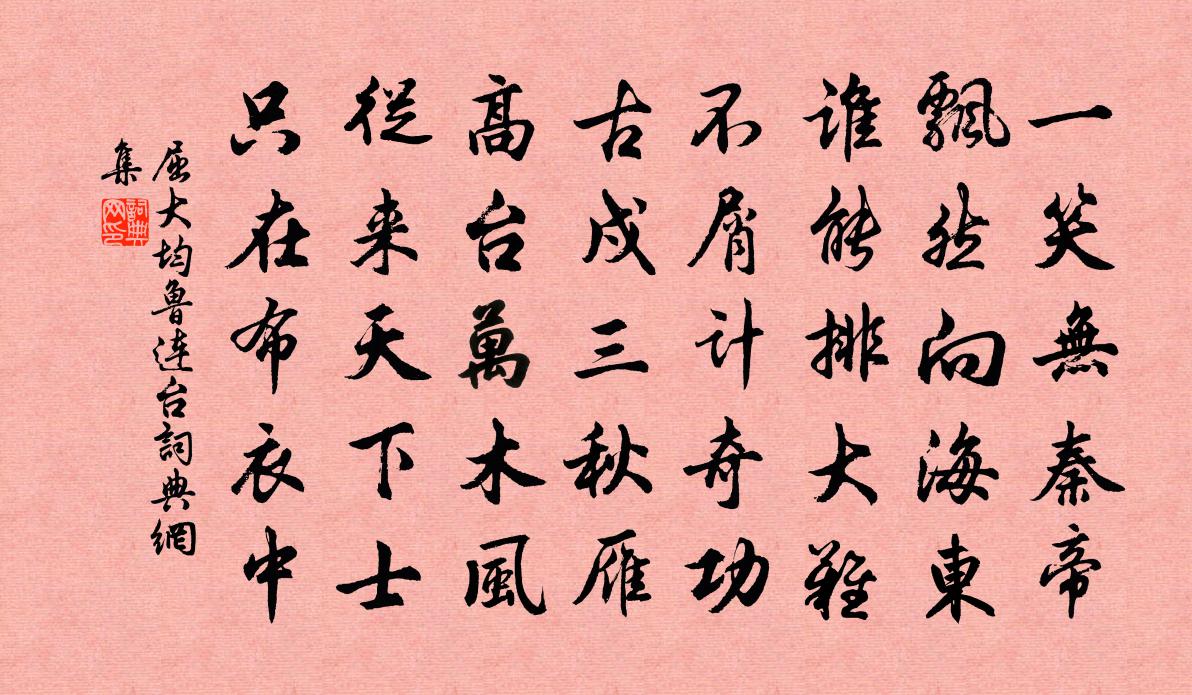 一笑無秦帝
飄然向海東
誰能排大難
不屑計奇功
古戍三秋雁
高台萬木風
從来天下士
只在布衣中
屈大均魯連台詞典網
集
詞典
网印